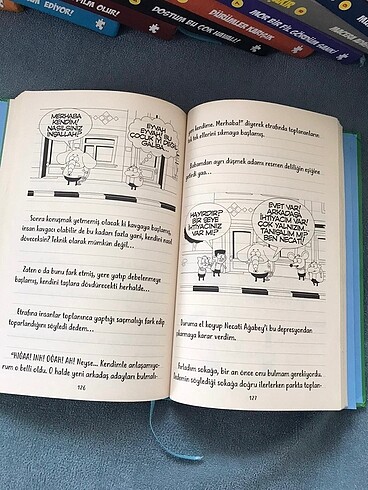 EDİYOR!
FİLM OLUR!
DOSTUM BU ÇOK
DÜRÜMLER KARIŞIK
MERHABA
KENDİM!
NASILSINIZ
İNŞALLAH?
EYVAH
EYVAH! BU
ÇOCUK İYİ DEĞİL
GALİBA.
Sonra konuşmak yetmemiş olacak ki kavgaya başlamış,
insan kavgacı olabilir de bu kadarı fazla yani, kendini nasıl
döveceksin? Teknik olarak mümkün değil...
Zaten o da bunu fark etmiş, yere yatıp debelenmeye
başlamış, kendini taşlara dövdürecekti herhalde...
Etrafına insanlar toplanınca yaptığı saçmalığı fark edip
toparlandığını söyledi dedem...
"HÖAA! INH! OĞAH! AH! Neyse... Kendimle anlaşamıyo-
rum o belli oldu. O halde yeni arkadaş adayları bulmalı-
126
kendime. Merhaba!" diyerek etrafında toplananların
tek tek ellerini sıkmaya başlamış.
Bakımdan ayrı düşmek adamı resmen deliliğin eşiğine
HAYIRDIR?
BİR ŞEYE
İHTİYACINIZ
VAR MI?
EVET VAR!
ARKADAŞA
İHTİYACIM VAR!
ÇOK YALNIZIM...
TANIŞALIM MI?
BEN NECATİ!
Duruma el koyup Necati Ağabey'i bu depresyondan
çıkarmaya karar verdim.
Fırladım sokağa, bir an önce onu bulmam gerekiyordu.
Dedemin söylediği sokağa doğru ilerlerken parkta toplan-
127